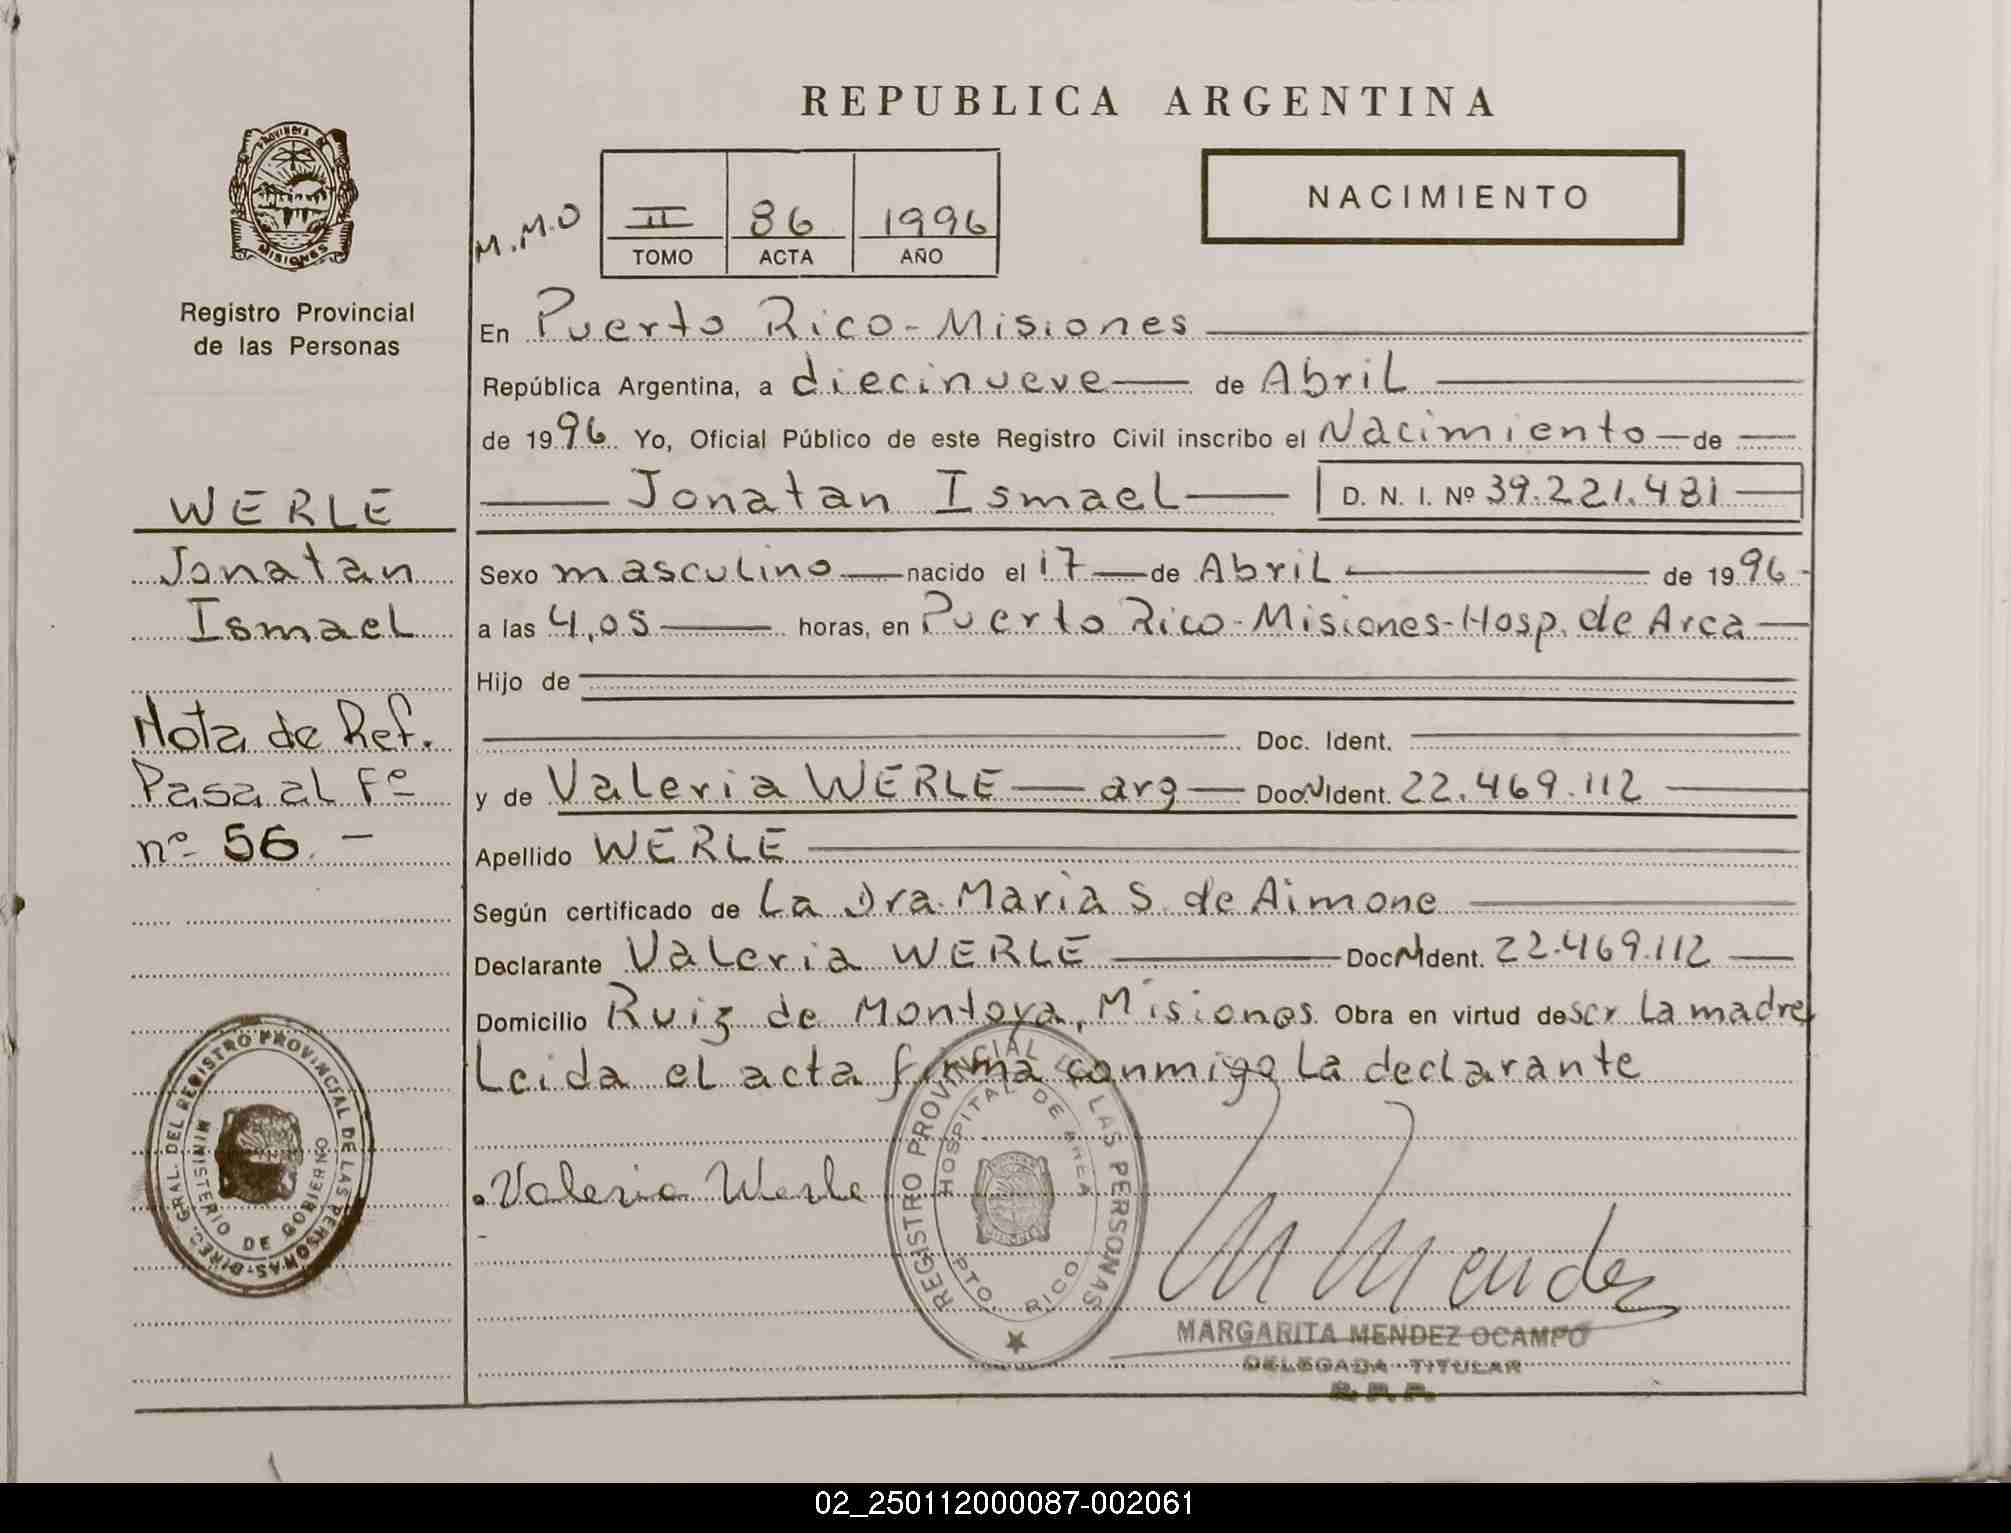 REPUBLICA ARGENTINA
PROVINCIA
MISIONES
Registro Provincial
de las Personas
M.M.O
II 86 1996
TOMO ACTA AÑO
NACIMIENTO
En Puerto Rico - Misiones
República Argentina, a diecinueve de Abril
de 1996 Yo, Oficial Público de este Registro Civil inscribo el Nacimiento de
Jonatan Ismael D. N. I. Nº 39.221.431
Sexo masculino nacido el 17 de Abril de 1996
a las 4,05 horas, en Puerto Rico - Misiones - Hosp. de Area
Hijo de
Doc. Ident.
y de Valeria WERLE arg Doc. Ident. 22.469.112
Apellido WERLE
Según certificado de La Dra. Maria S. de Aimone
Declarante Valeria WERLE Doc. Ident. 22.469.112
Domicilio Ruiz de Montoya, Misiones Obra en virtud de ser la madre
Leida el acta firma conmigo la declarante
WERLE
Jonatan
Ismael
Nota de Ref.
Pasa al Fº
nº 56. -
DIREC. GRAL. DEL REGISTRO PROVINCIAL DE LAS PERSONAS
MINISTERIO DE GOBIERNO
Valeria Werle
REGISTRO PROVINCIAL DE LAS PERSONAS
HOSPITAL DE AREA
PTO. RICO
M Mendez
MARGARITA MENDEZ OCAMPO
DELEGADA TITULAR
R. P. P.
02_250112000087-002061